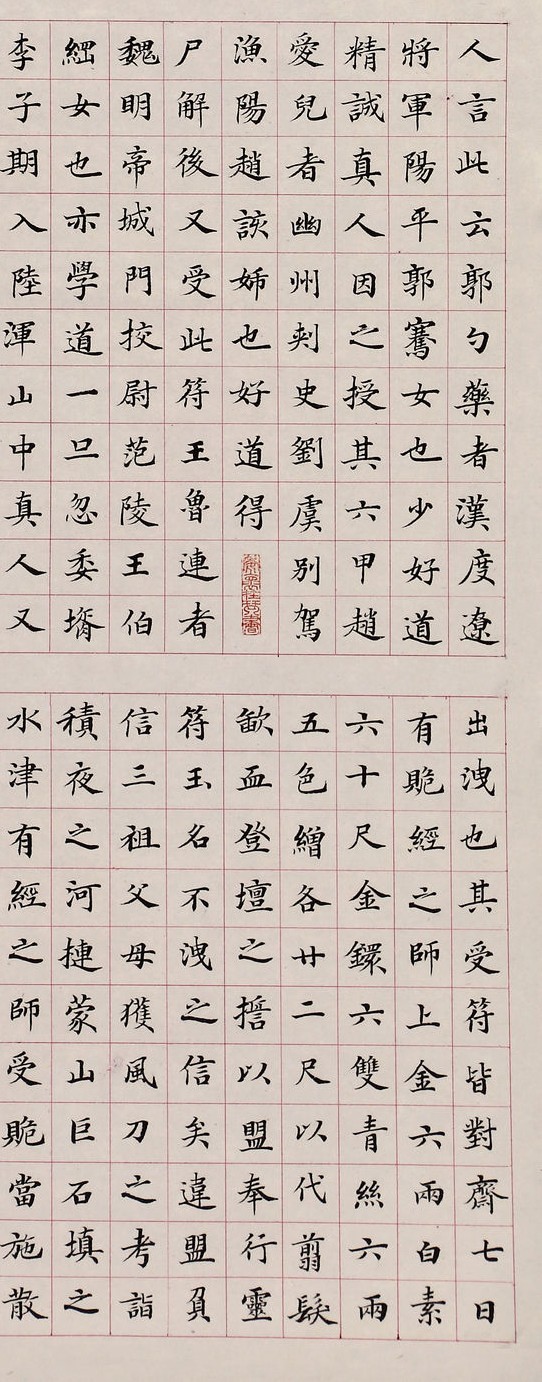 人言此云郭勺藥者漢度遼
將軍陽平郭騫女也少好道
精誠真人因之授其六甲趙
愛兒者幽州刾史劉虞別駕
漁陽趙該姊也好道得
尸解後又受此符王魯連者
魏明帝城門挍尉范陵王伯
綱女也亦學道一旦忽委壻
李子期入陸渾山中真人又
出洩也其受符皆對齋七日
有貤經之師上金六兩白素
六十尺金鐶六雙青絲六兩
五色繒各廿二尺以代翦髮
歃血登壇之擔以盟奉行靈
符玉名不洩之信矣違盟負
信三祖父母獲風刀之考詣
積夜之河摙蒙山巨石填之
水津有經之師受貤當施散